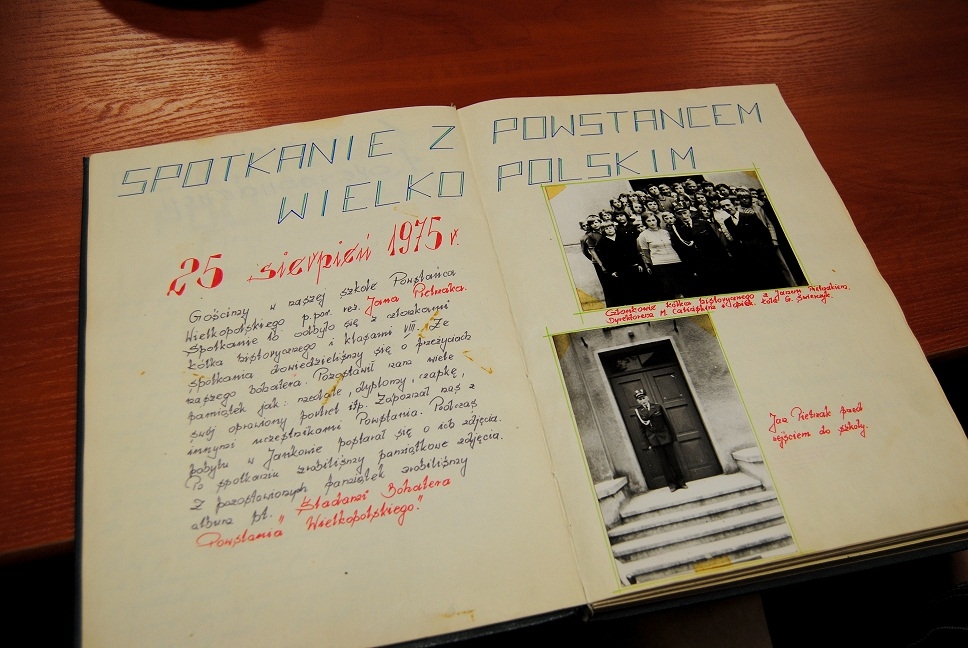 SPOTKANIE Z POWSTANCEM
WIELKO POLSKIM
25 sierpień 1975 r.
Gościmy w naszej szkole Powstańca
Wielkopolskiego p.por. rez. Jana Pietrzaka.
Spotkanie to odbyło się z członkami
kółka historycznego i klasami VIII. Ze
spotkania dowiedzieliśmy się o przeżyciach
naszego bohatera. Pozostawił nam wiele
pamiątek jak: medale, dyplomy, czapkę,
swój oprawiony portret itp. Zapoznał nas z
innymi uczestnikami Powstania. Podczas
pobytu w Jankowie postarał się o ich zdjęcia.
Po spotkaniu zrobiliśmy pamiątkowe zdjęcia.
Z pozostawionych pamiątek zrobiliśmy
album pt. "Śladami Bohatera
Powstania Wielkopolskiego."
Członkowie kółka historycznego z Janem Pietrzakiem,
Dyrektorem M. i opiek. koła G.
Jan Pietrzak przed
wejściem do szkoły.